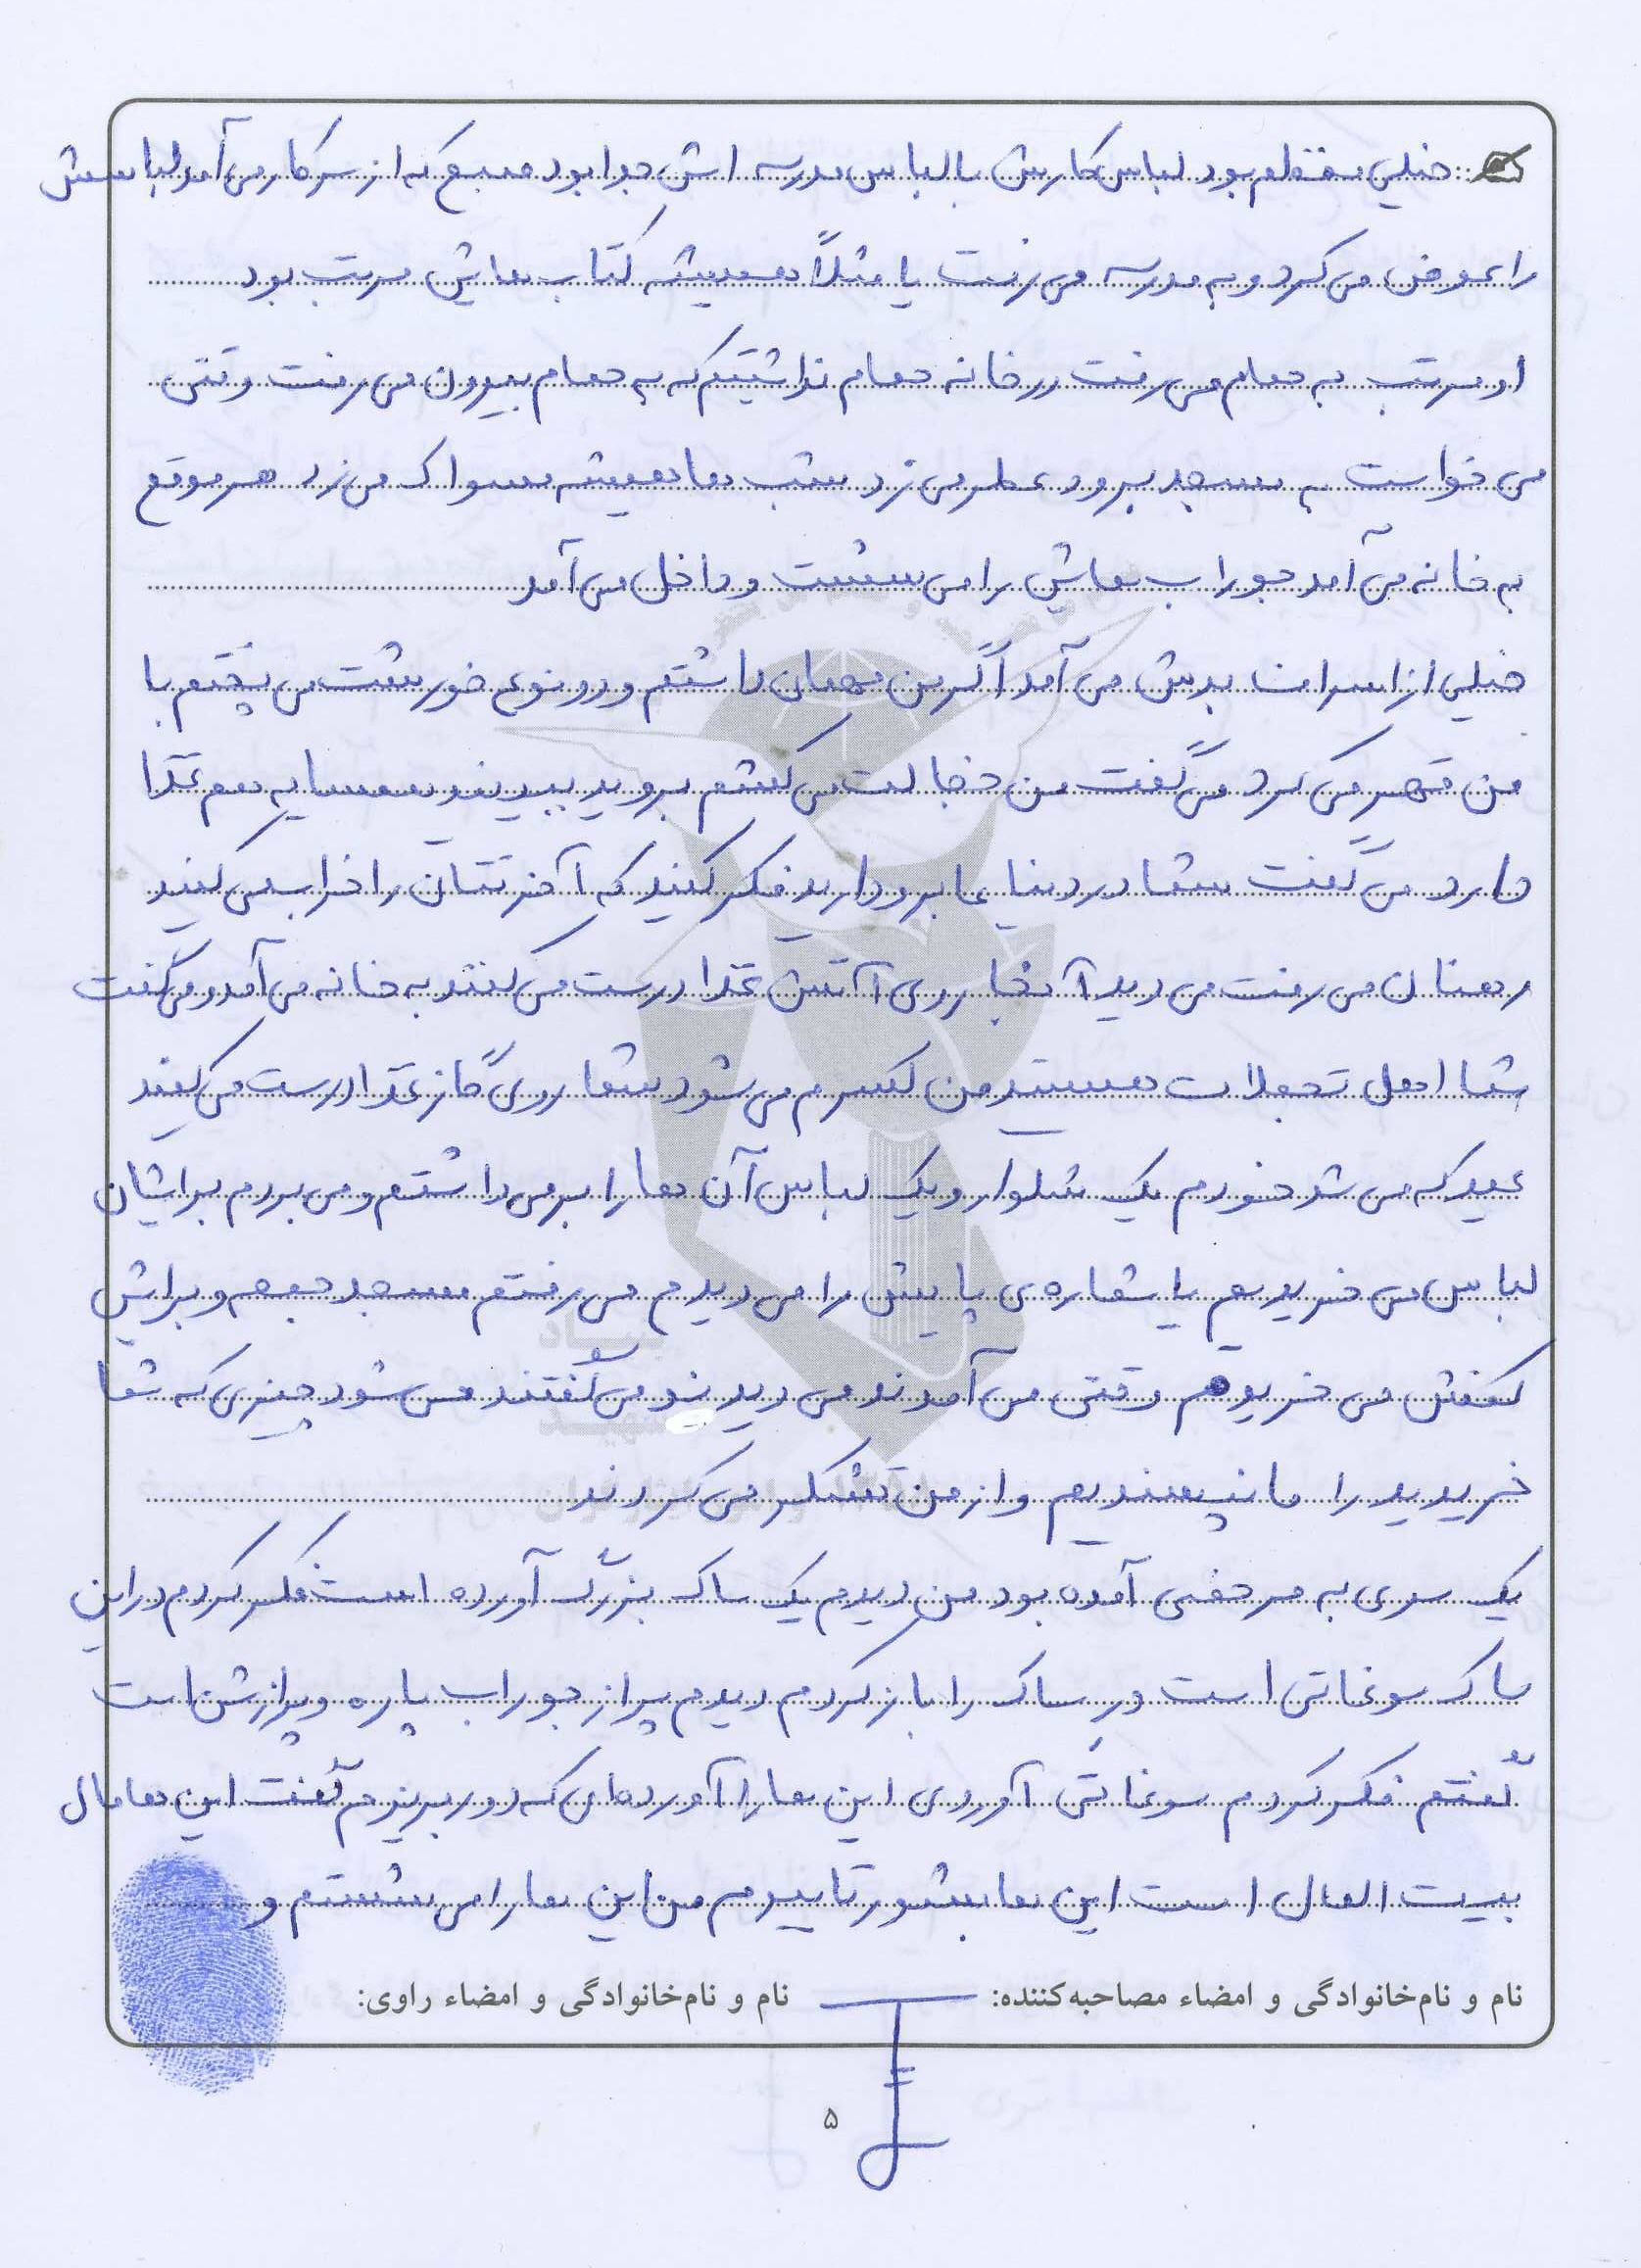 خیلی منظم بود لباس کارش با لباس مدرسه اش جدا بود صبح که از سر کار می آمد لباسش
را عوض می کرد و به مدرسه می رفت یا مثلاً همیشه کتاب هایش مرتب بود
او مرتب به حمام می رفت در خانه حمام نداشتیم که به حمام بیرون می رفت وقتی
می خواست به مسجد برود عطر می زد شب ها همیشه مسواک می زد هر موقع
به خانه می آمد جوراب هایش را می شست و داخل می آمد
خیلی از اسراف بدش می آمد اگر من مهمان داشتم و دو نوع خورشت می پختم با
من قهر می کرد می گفت من خجالت می کشم بروید ببینید همسایه هم غذا
دارد می گفت شما در دنیا عابرو دارید فکر کنید که آخرتتان را خراب می کنید
دهنان می رفت می دید آنجا روی آتش غذا درست می کنند به خانه می آمد و می گفت
شما اهل تجملات هستید من کسرم می شود شما روی گاز غذا درست می کنید
عید که می شد خودم یک شلوار و یک لباس آن ها را برمی داشتم و می بردم برایشان
لباس می خریدیم یا شماره ی پایش را می دیدم می رفتم مسجد جمعه و برایش
کفش می خریدم وقتی می آمدند می دیدند و می گفتند می شود چیزی که شما
خریدید را ما نپسندیم و از من تشکر می کردند
یک سری به مرخصی آمده بود من دیدم یک ساک بزرگ آورده است فکر کردم در این
ساک سوغاتی است در ساک را باز کردم دیدم پر از جوراب پاره و پر از شن است
گفتم فکر کردم سوغاتی آوردی این ها را آورده ای که دور بریزم گفت این ها مال
بیت المال است این ها بشور تا ببرم من این ها را می شستم و
نام و نام‌خانوادگی و امضاء مصاحبه‌کننده: نام و نام‌خانوادگی و امضاء راوی:
۵